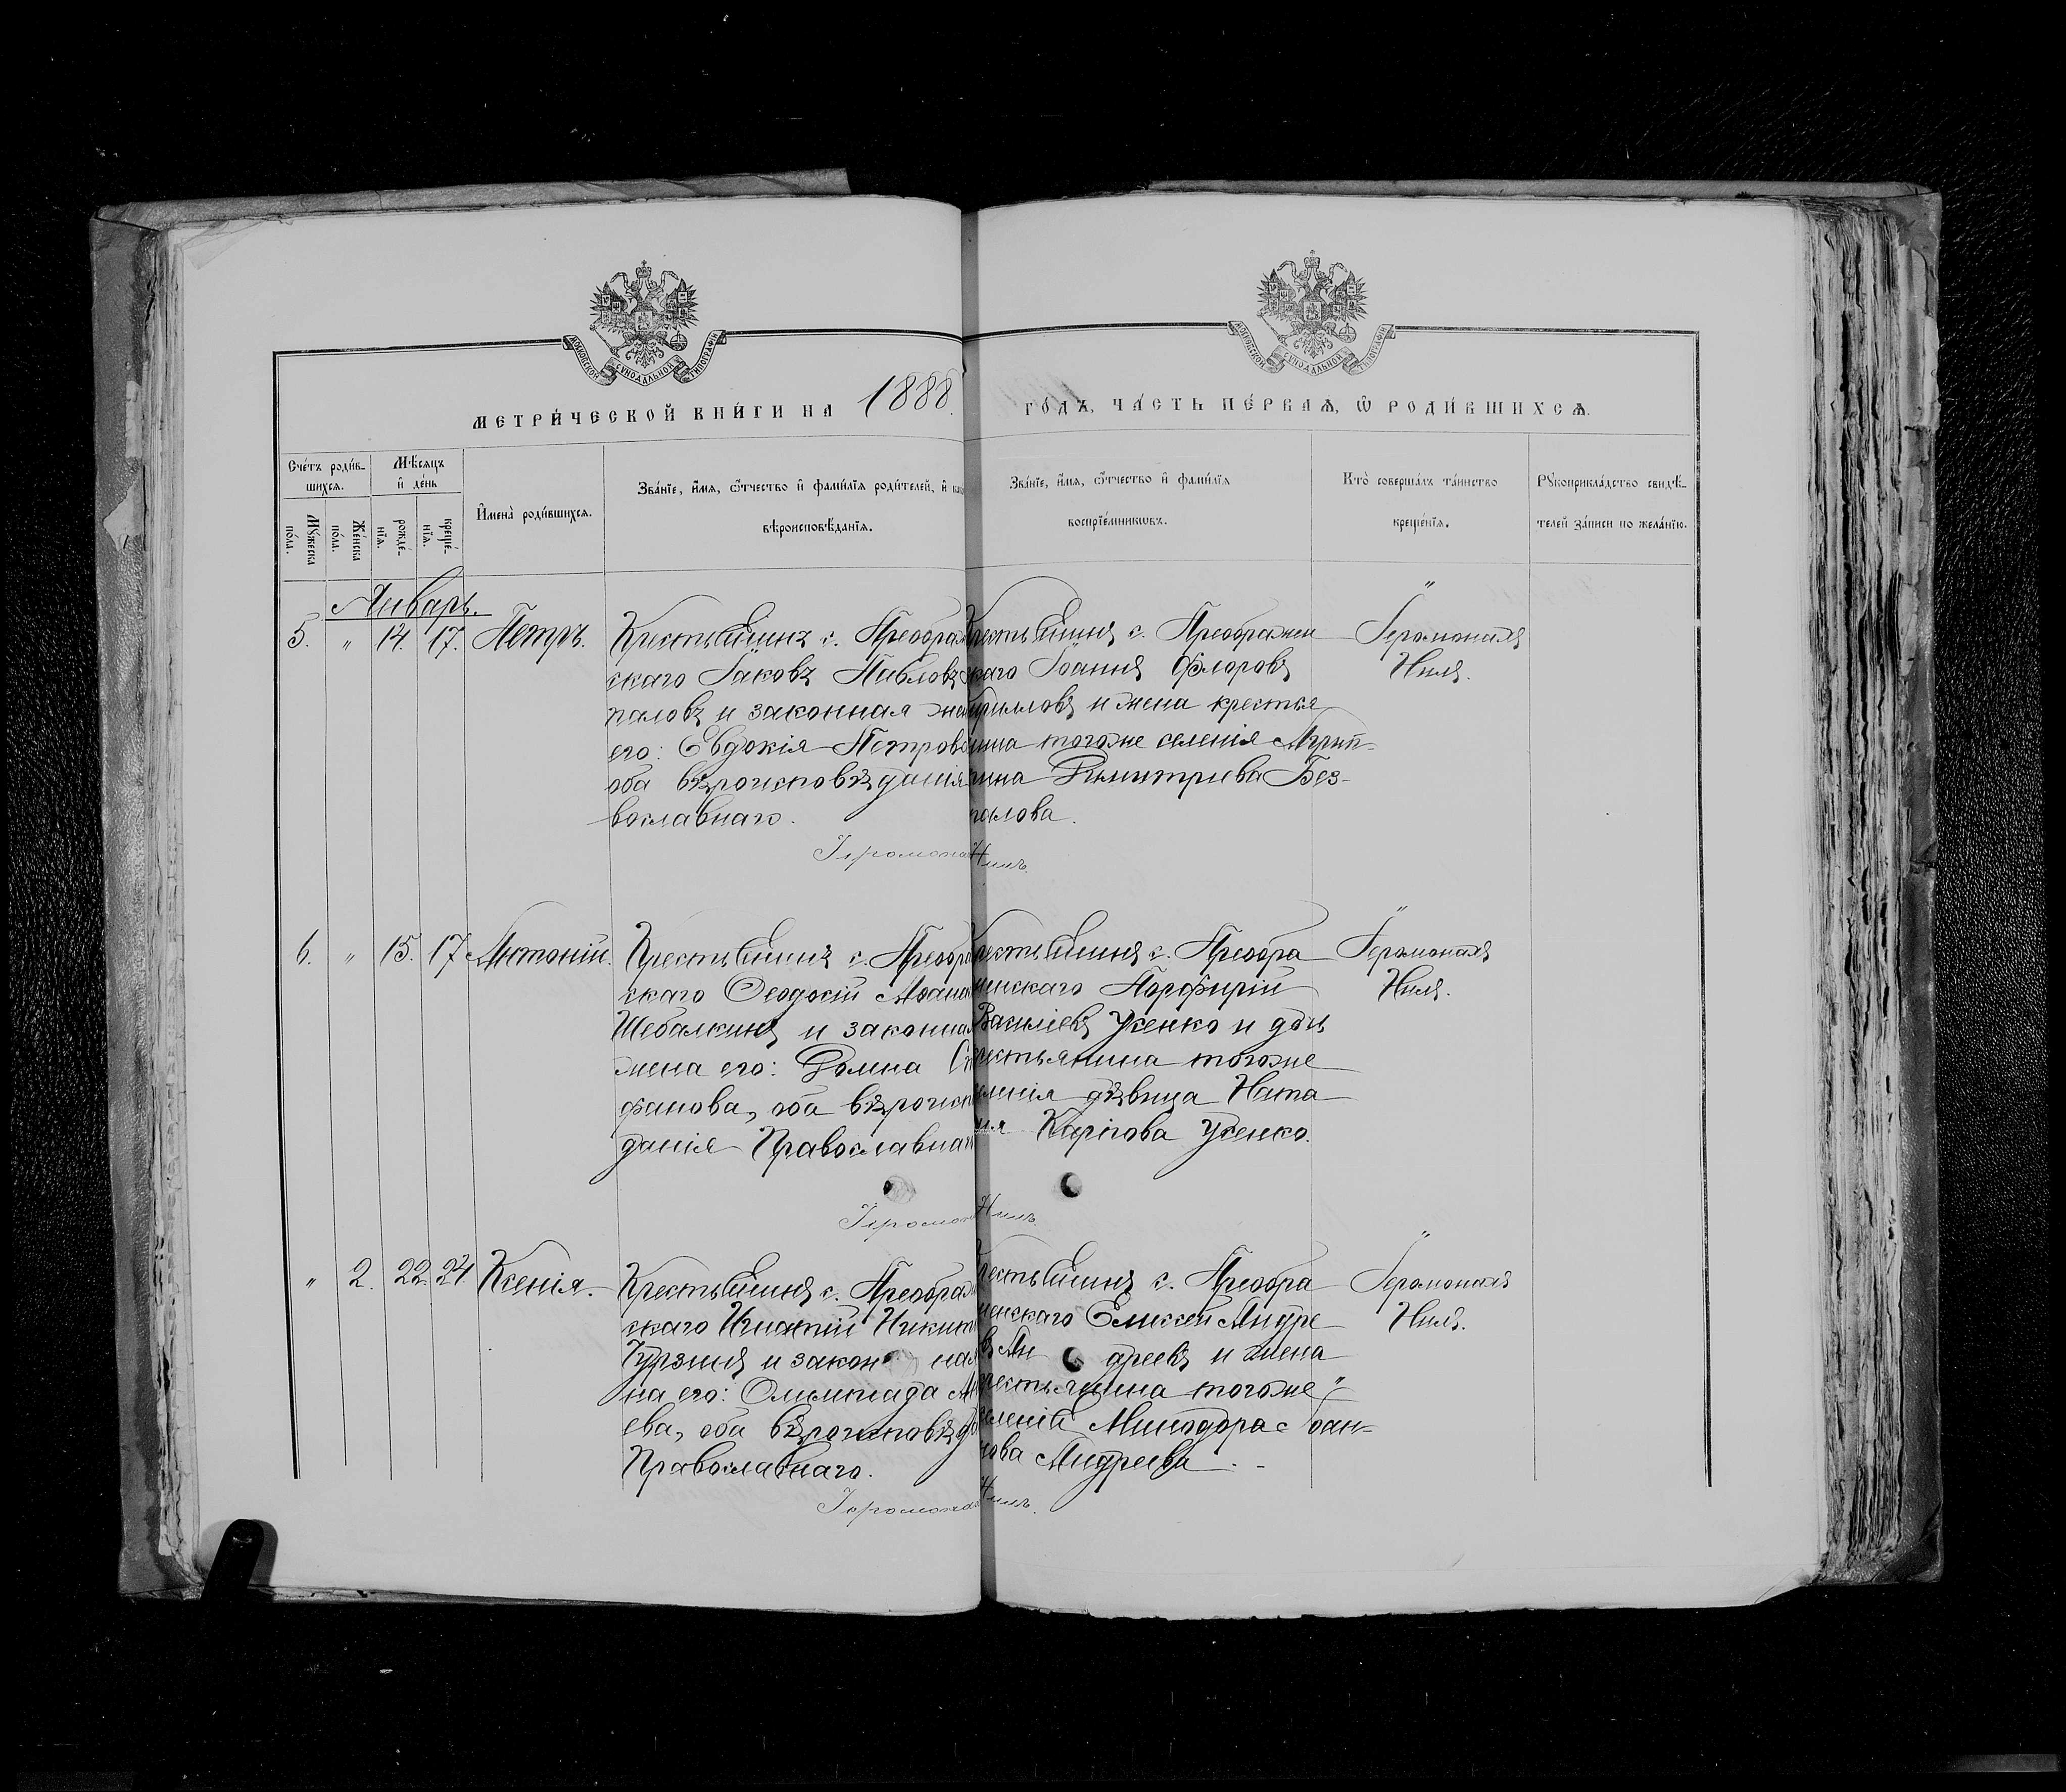 МОСКОВСКОЙ СѴНОДАЛЬНОЙ ТИПОГРАФІИ
МОСКОВСКОЙ СѴНОДАЛЬНОЙ ТИПОГРАФІИ
МЕТРИ́ЧЕСКОЙ КНИ́ГИ НА 1888.
ГО́ДЪ, ЧА́СТЬ ПЕ́РВАѦ, Ѽ РОДИ́ВШИХСѦ.
Сче́тъ роди́в-
шихся.
Мѣ́сяцъ
и҆ де́нь
Мꙋжеска
по́ла.
Же́нска
по́ла.
рожде́-
нїя.
креще́-
нїя.
И҆мена̀ роди́вшихся.
Зва́нїе, и҆́мя, ѻ҆́тчество и҆ фами́лїя роди́телей, и҆ как
вѣроисповѣ́данїя.
Зва́нїе, и҆́мя, ѻ҆́тчество и҆ фами́лїя
воспрїе́мникѡвъ.
Кто̀ соверша́лъ та́инство
креще́нїя.
Рꙋкоприкла́дство свидѣ́-
телей за́писи по жела́нїю.
Январь.
5. " 14. 17. Петръ.
Крестьянинъ с. Преображ
скаго Іаковъ Павловъ
паловъ и законная жен
его: Евдокія Петров
оба вѣроисповѣданія
вославнаго.
Іеромона
Крестьянинъ с. Преображен
скаго Іоаннъ Флоровъ
рилловъ и жена крестья
нина тогоже селенія Агрип-
пина Димитриева Без-
палова.
Нилъ.
Іеромонахъ
Нилъ.
6. " 15. 17. Антоній.
Крестьянинъ с. Преобра
скаго Ѳеодосій Аѳана
Шебалкинъ и законна
жена его: Домна Ст
фанова, оба вѣроисп
данія Православнаг
Іеромон
рестьянинъ с. Преобра
женскаго Порфирій
Василіевъ Усенко и дочь
рестьянина тогоже
еленія дѣвица Ната
лія Карпова Усенко.
Нилъ.
Іеромонахъ
Нилъ.
" 2. 22. 24. Ксенія.
Крестьянинъ с. Преображ
скаго Игнатій Никит
Гурзинъ и закон ная
на его: Олимпіада М
ева, оба вѣроисповѣда
Православнаго.
Іеромона
рестьянинъ с. Преобра
женскаго Елиссей Андре
въ Ан дреевъ и жена
рестьянина тогоже
еленія Минодора Іоан-
нова Андреева.
Нилъ.
Іеромонахъ
Нилъ.